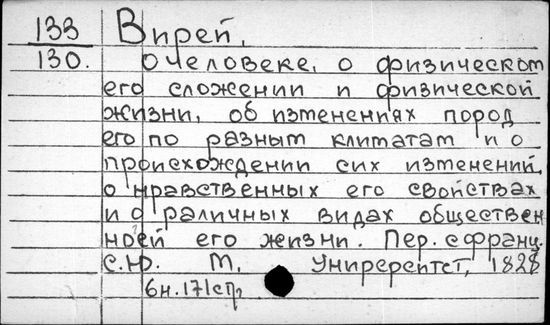 133 Вирей,
130. о человеке, о физическом
его сложении и физической
жизни, об изменениях пород
его по разным климатам и о
происхождении сих изменений,
о нравственных его свойствах
и о раличных видах обществен
ной его жизни. Пер. с франц.
С.Ю. М. Университет, 1828
6н. 171 стр.